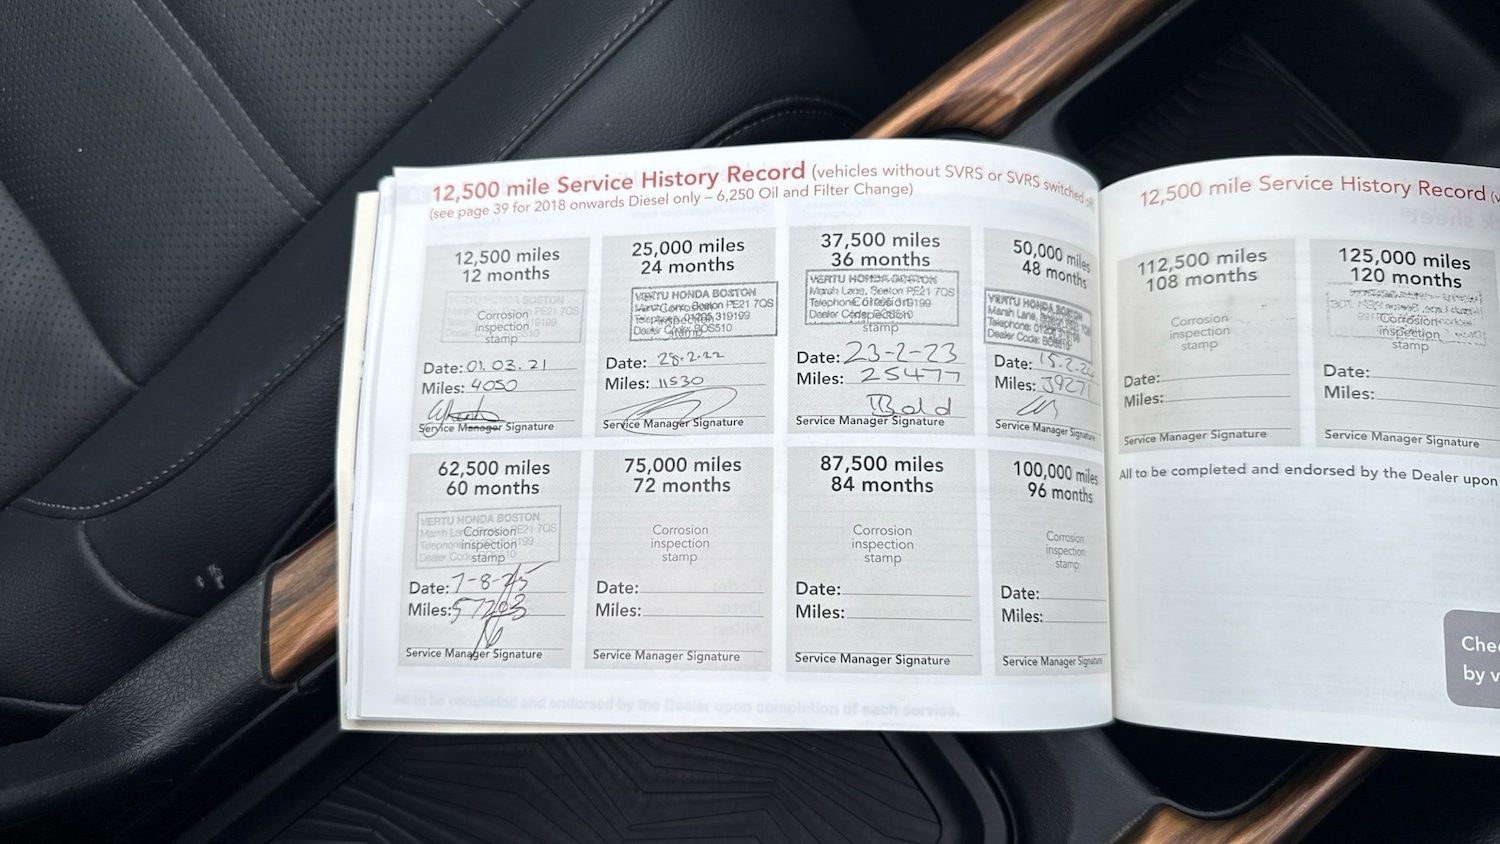 12,500 mile Service History Record (vehicles without SVRS or SVRS switched off)
(see page 39 for 2018 onwards Diesel only – 6,250 Oil and Filter Change)
12,500 miles
12 months
VERTU HONDA BOSTON
Corrosion
inspection
stamp
Date: 01.03.21
Miles: 4050
Service Manager Signature
25,000 miles
24 months
VERTU HONDA BOSTON
Marsh Lane, Boston PE21 7QS
Telephone: 01205 319199
Dealer Code: BOS510
Corrosion
inspection
stamp
Date: 28-2-22
Miles: 11530
Service Manager Signature
37,500 miles
36 months
VERTU HONDA BOSTON
Marsh Lane, Boston PE21 7QS
Telephone: 01205 319199
Dealer Code: BOS510
Corrosion
inspection
stamp
Date: 23-2-23
Miles: 25477
Service Manager Signature
50,000 miles
48 months
VERTU HONDA BOSTON
Marsh Lane,
Telephone:
Dealer Code:
Date: 15.2.24
Miles: 39271
Service Manager Signature
62,500 miles
60 months
VERTU HONDA BOSTON
Corrosion
inspection
stamp
Date: 7-8-25
Miles: 57203
Service Manager Signature
75,000 miles
72 months
Corrosion
inspection
stamp
Date:
Miles:
Service Manager Signature
87,500 miles
84 months
Corrosion
inspection
stamp
Date:
Miles:
Service Manager Signature
100,000 miles
96 months
Corrosion
inspection
stamp
Date:
Miles:
Service Manager Signature
12,500 mile Service History Record (v
112,500 miles
108 months
Corrosion
inspection
stamp
Date:
Miles:
Service Manager Signature
125,000 miles
120 months
Corrosion
inspection
stamp
Date:
Miles:
Service Manager Signature
All to be completed and endorsed by the Dealer upon
Chec
by v